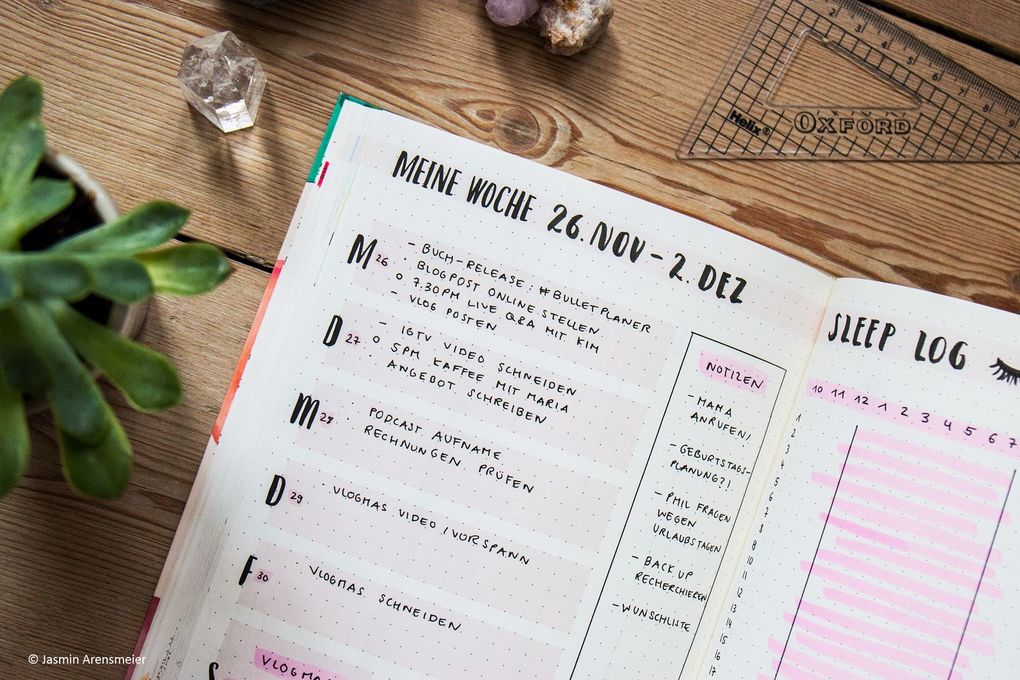 MEINE WOCHE 26. NOV - 2. DEZ
M 26
- BUCH-RELEASE: #BULLETPLANER
· BLOGPOST ONLINE STELLEN
○ 7.30PM LIVE Q&A MIT KIM
- VLOG POSTEN
D 27
- IGTV VIDEO SCHNEIDEN
○ 5PM KAFFEE MIT MARIA
· ANGEBOT SCHREIBEN
M 28
· PODCAST AUFNAHME
· RECHNUNGEN PRÜFEN
D 29
· VLOGMAS VIDEO / VORSPANN
F 30
· VLOGMAS SCHNEIDEN
S
NOTIZEN
- MAMA
ANRUFEN!
- GEBURTSTAGS-
PLANUNG?!
- PHIL FRAGEN
WEGEN
URLAUBSTAGEN
- BACK UP
RECHERCHIEREN
- WUNSCHLISTE
SLEEP LOG
10 11 12 1 2 3 4 5 6 7
1
2
3
4
5
6
7
8
9
10
11
12
13
14
15
16
17
Helix®
OXFORD
2 3 4 5 6 7 8 9
© Jasmin Arensmeier